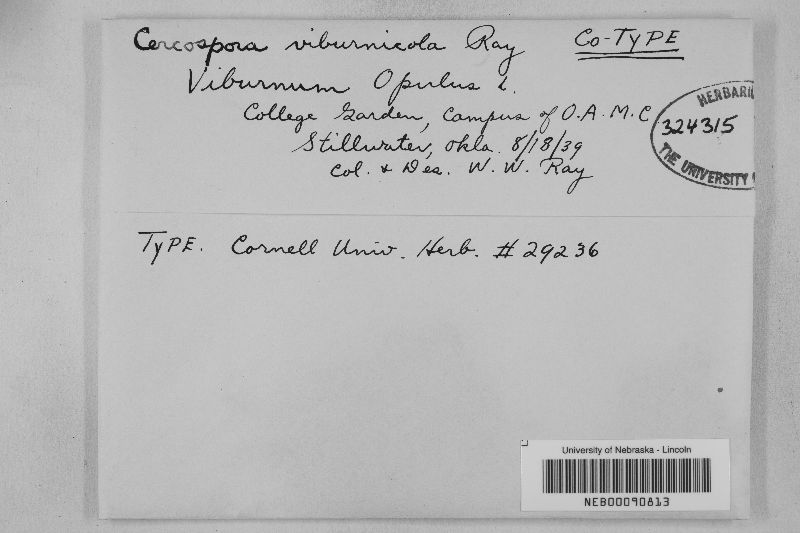 Cercospora viburnicola Ray Co-TYPE
Viburnum Opulus L.
College Garden, Campus of O.A.M.C
Stillwater, Okla. 8/18/39
Col. & Des. W. W. Ray
HERBARI
324315
THE UNIVERSITY
TYPE. Cornell Univ. Herb. # 29236
University of Nebraska - Lincoln
NEB00090813